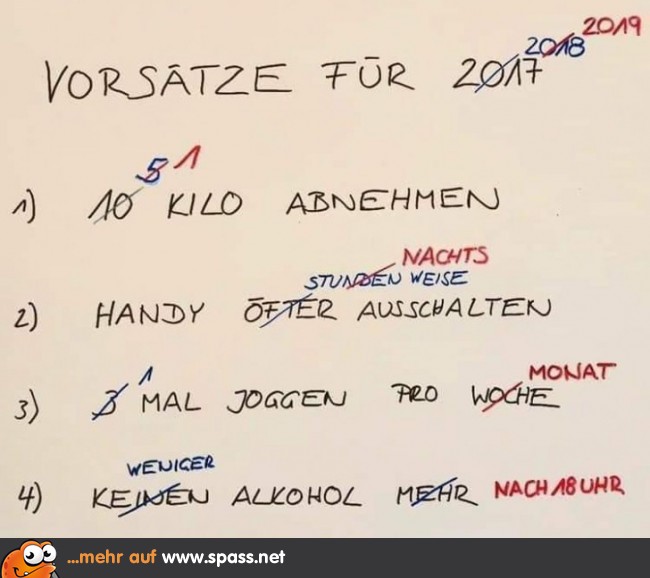 2019
2018
VORSÄTZE FÜR 2017
5 1
1) 10 KILO ABNEHMEN
NACHTS
STUNDEN WEISE
2) HANDY ÖFTER AUSSCHALTEN
1 MONAT
3) 3 MAL JOGGEN PRO WOCHE
WENIGER
4) KEINEN ALKOHOL MEHR NACH 18 UHR
...mehr auf www.spass.net